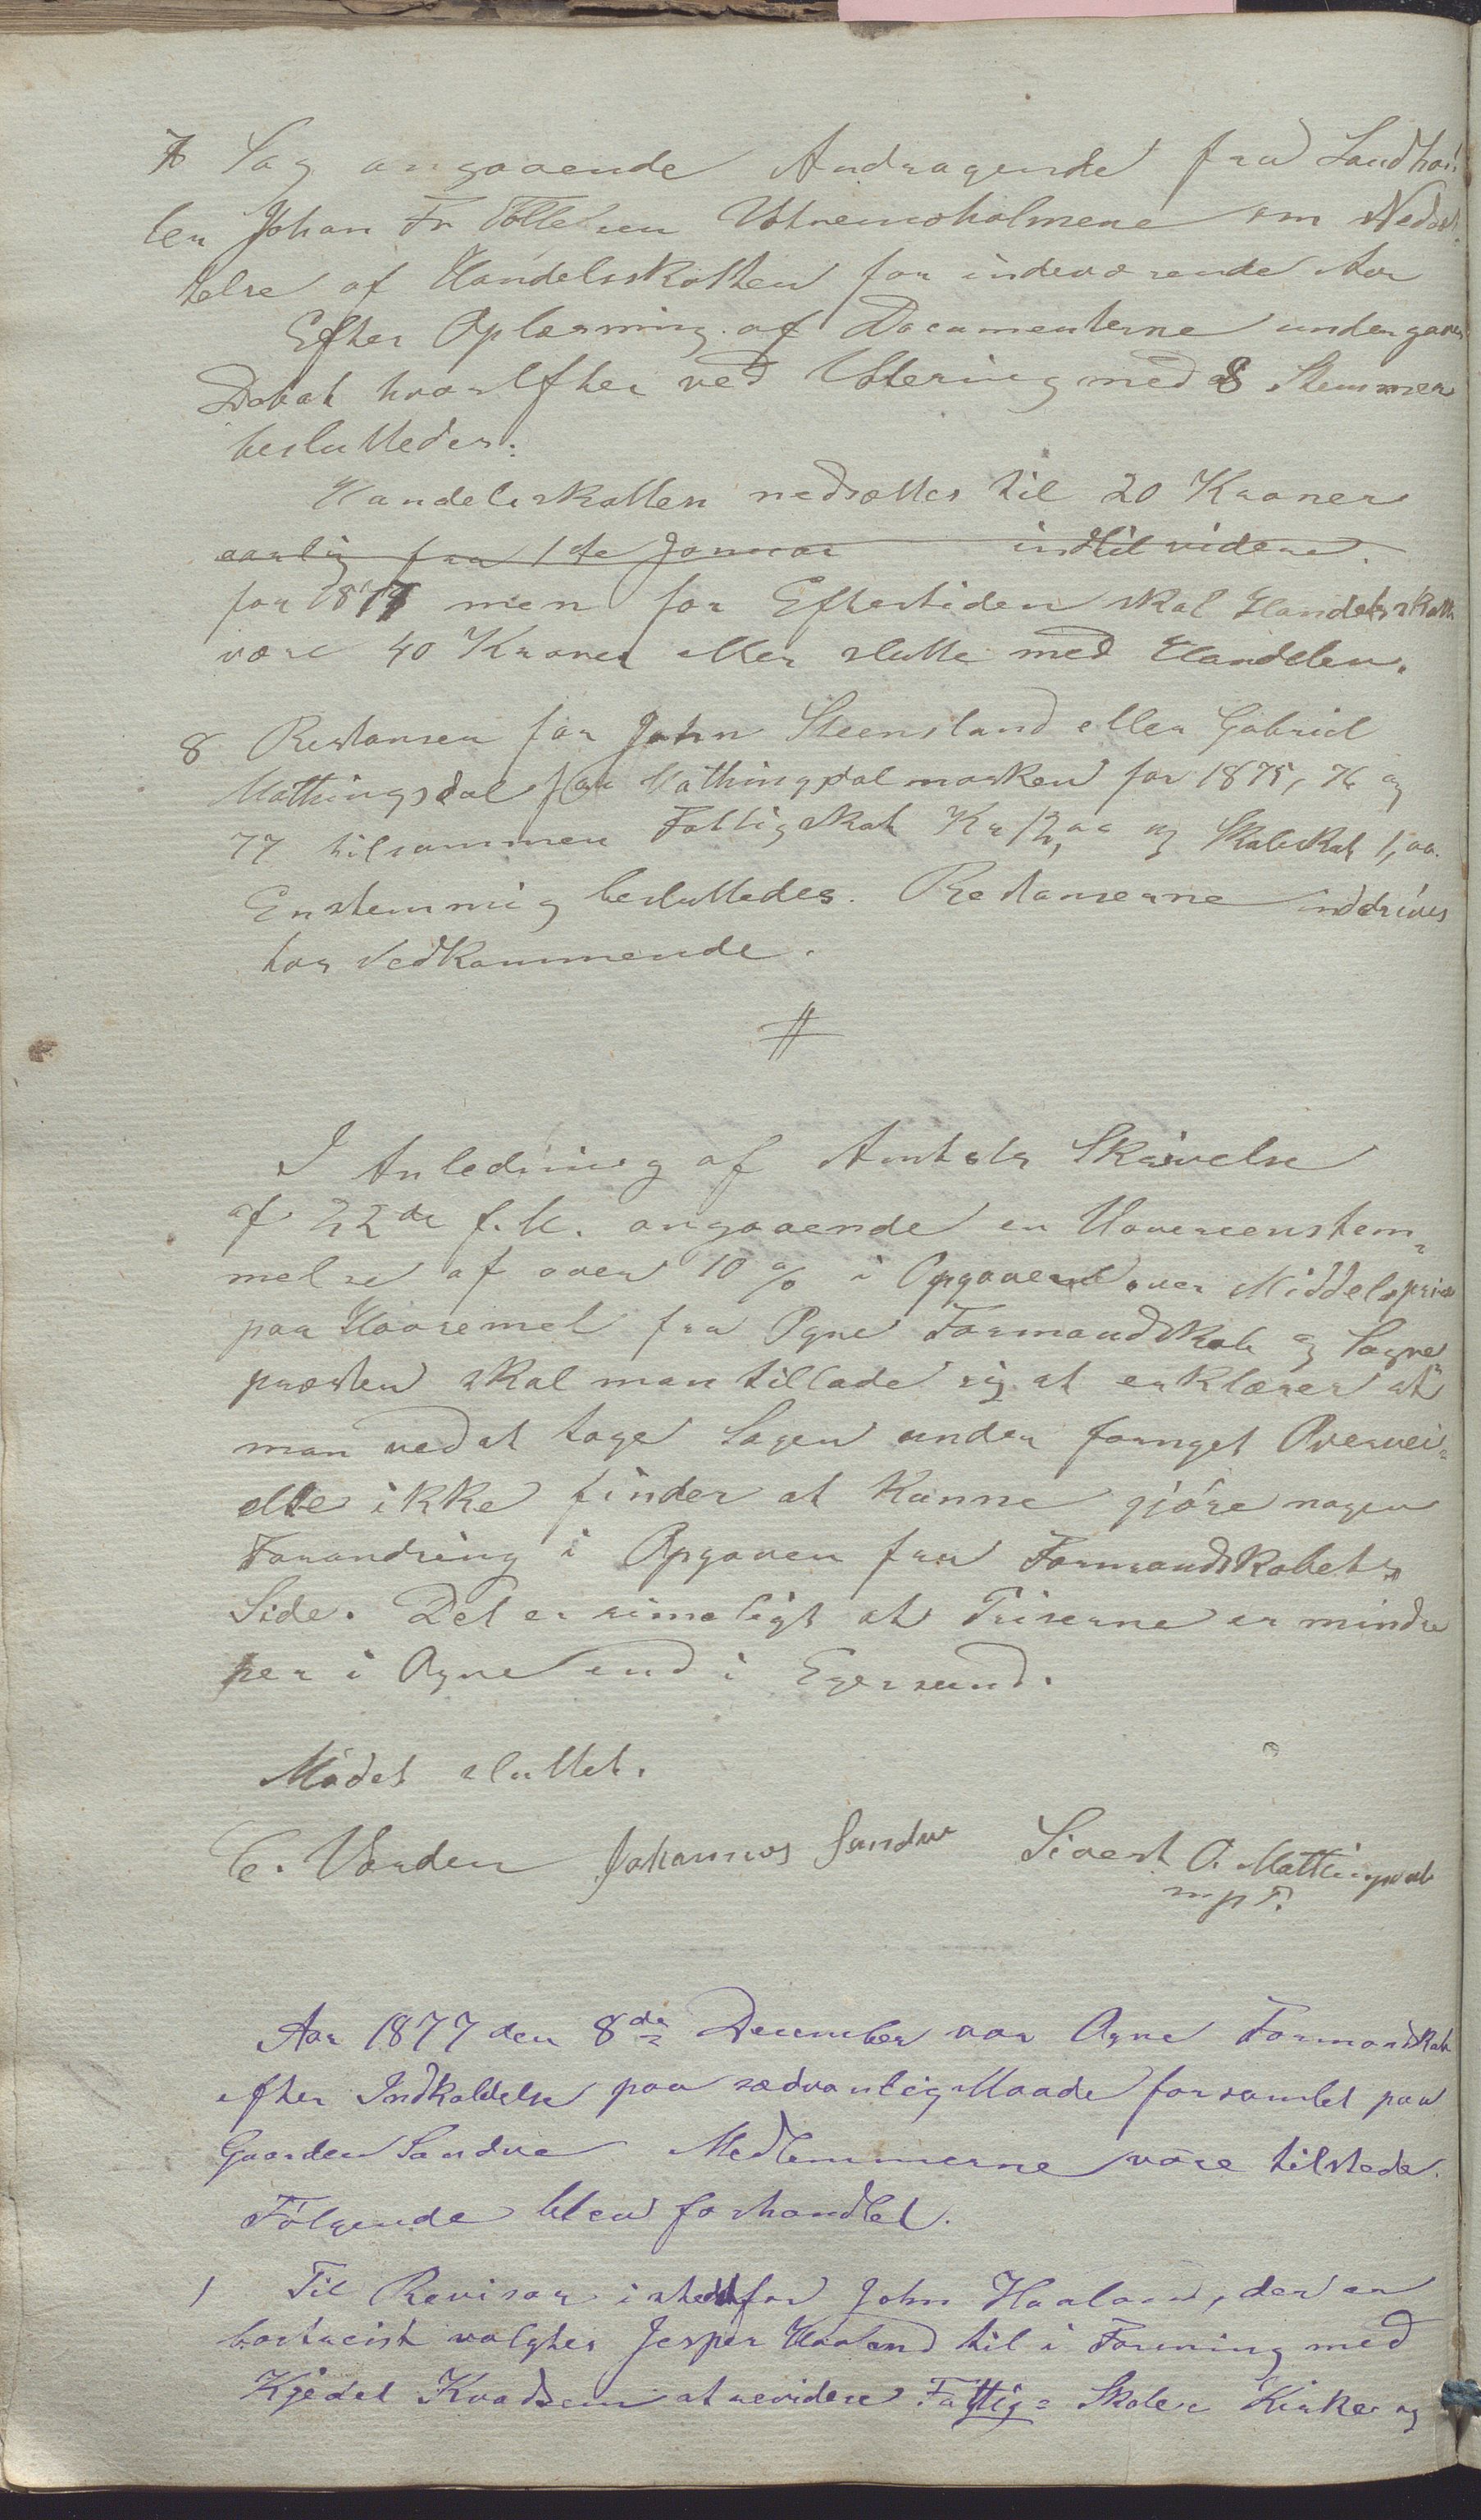 7 Sag angaaende Andragende fra Landhan-
len Johan Fr Tollefsen om Nedsæt-
telse af Handelsskatten for indeværende Aar
Efter Oplæsning af Documenterne undergaves
Debat hvorefter ved Votering med 8 Stemmer
besluttedes:
Handelsskatten nedsættes til 20 Kroner
aarlig fra 1ste Januar indtil videre.
for 1877 men for Eftertiden skal Handelsskatten
være 40 Kroner eller slutte med Handelen.
8 Restansen for John Steensland eller Gabriel
Mathingsdal for Mathingsdalmarken for 1875, 76 og
77 tilsammen Fattigskat Kr 12,00 og Skoleskat 1,00.
Enstemmig besluttedes. Restanserne inddrives
hos Vedkommende.
#
I Anledning af Amtets Skrivelse
af 22de f. M. angaaende en Uovereenstem-
melse af over 10 % i Opgaverne over Middelspris
paa Havremel fra Ogne Formandskab og Sogne
præsten skal man tillade sig at erklære at
man ved at tage Sagen under fornyet Overvei-
else ikke finder at kunne gjøre nogen
Forandring i Opgaven fra Formandskabets
Side. Det er rimeligt at Priserne er mindre
her i Ogne end i Egersund.
Mødet sluttet.
C. Varden Johannes Sandve Sivert O. Mathingsdal
mpr.
Aar 1877 den 8de December var Ogne Formandskab
efter Indkaldelse paa sædvanlig Maade forsamlet paa
Gaarden Sandve Medlemmerne være tilstede.
Følgende blev forhandlet.
1 Til Revisor istedetfor John Haaland, der er
bortreist valgtes Jesper Haaland til i Forening med
Kjedel Kvadsem at revidere Fattig- Skole- Kirke og